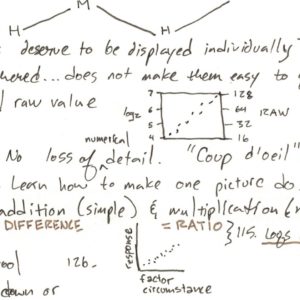 M
H H
deserve to be displayed individually
hered... does not make them easy to
raw value
7 128
6 64
log2 RAW
5 32
4 16
numerical
No loss of detail. "Coup d'oeil"
Learn how to make one picture do
addition (simple) & multiplication
DIFFERENCE = RATIO } 115. Logs
response
126.
down or
factor
circumstance